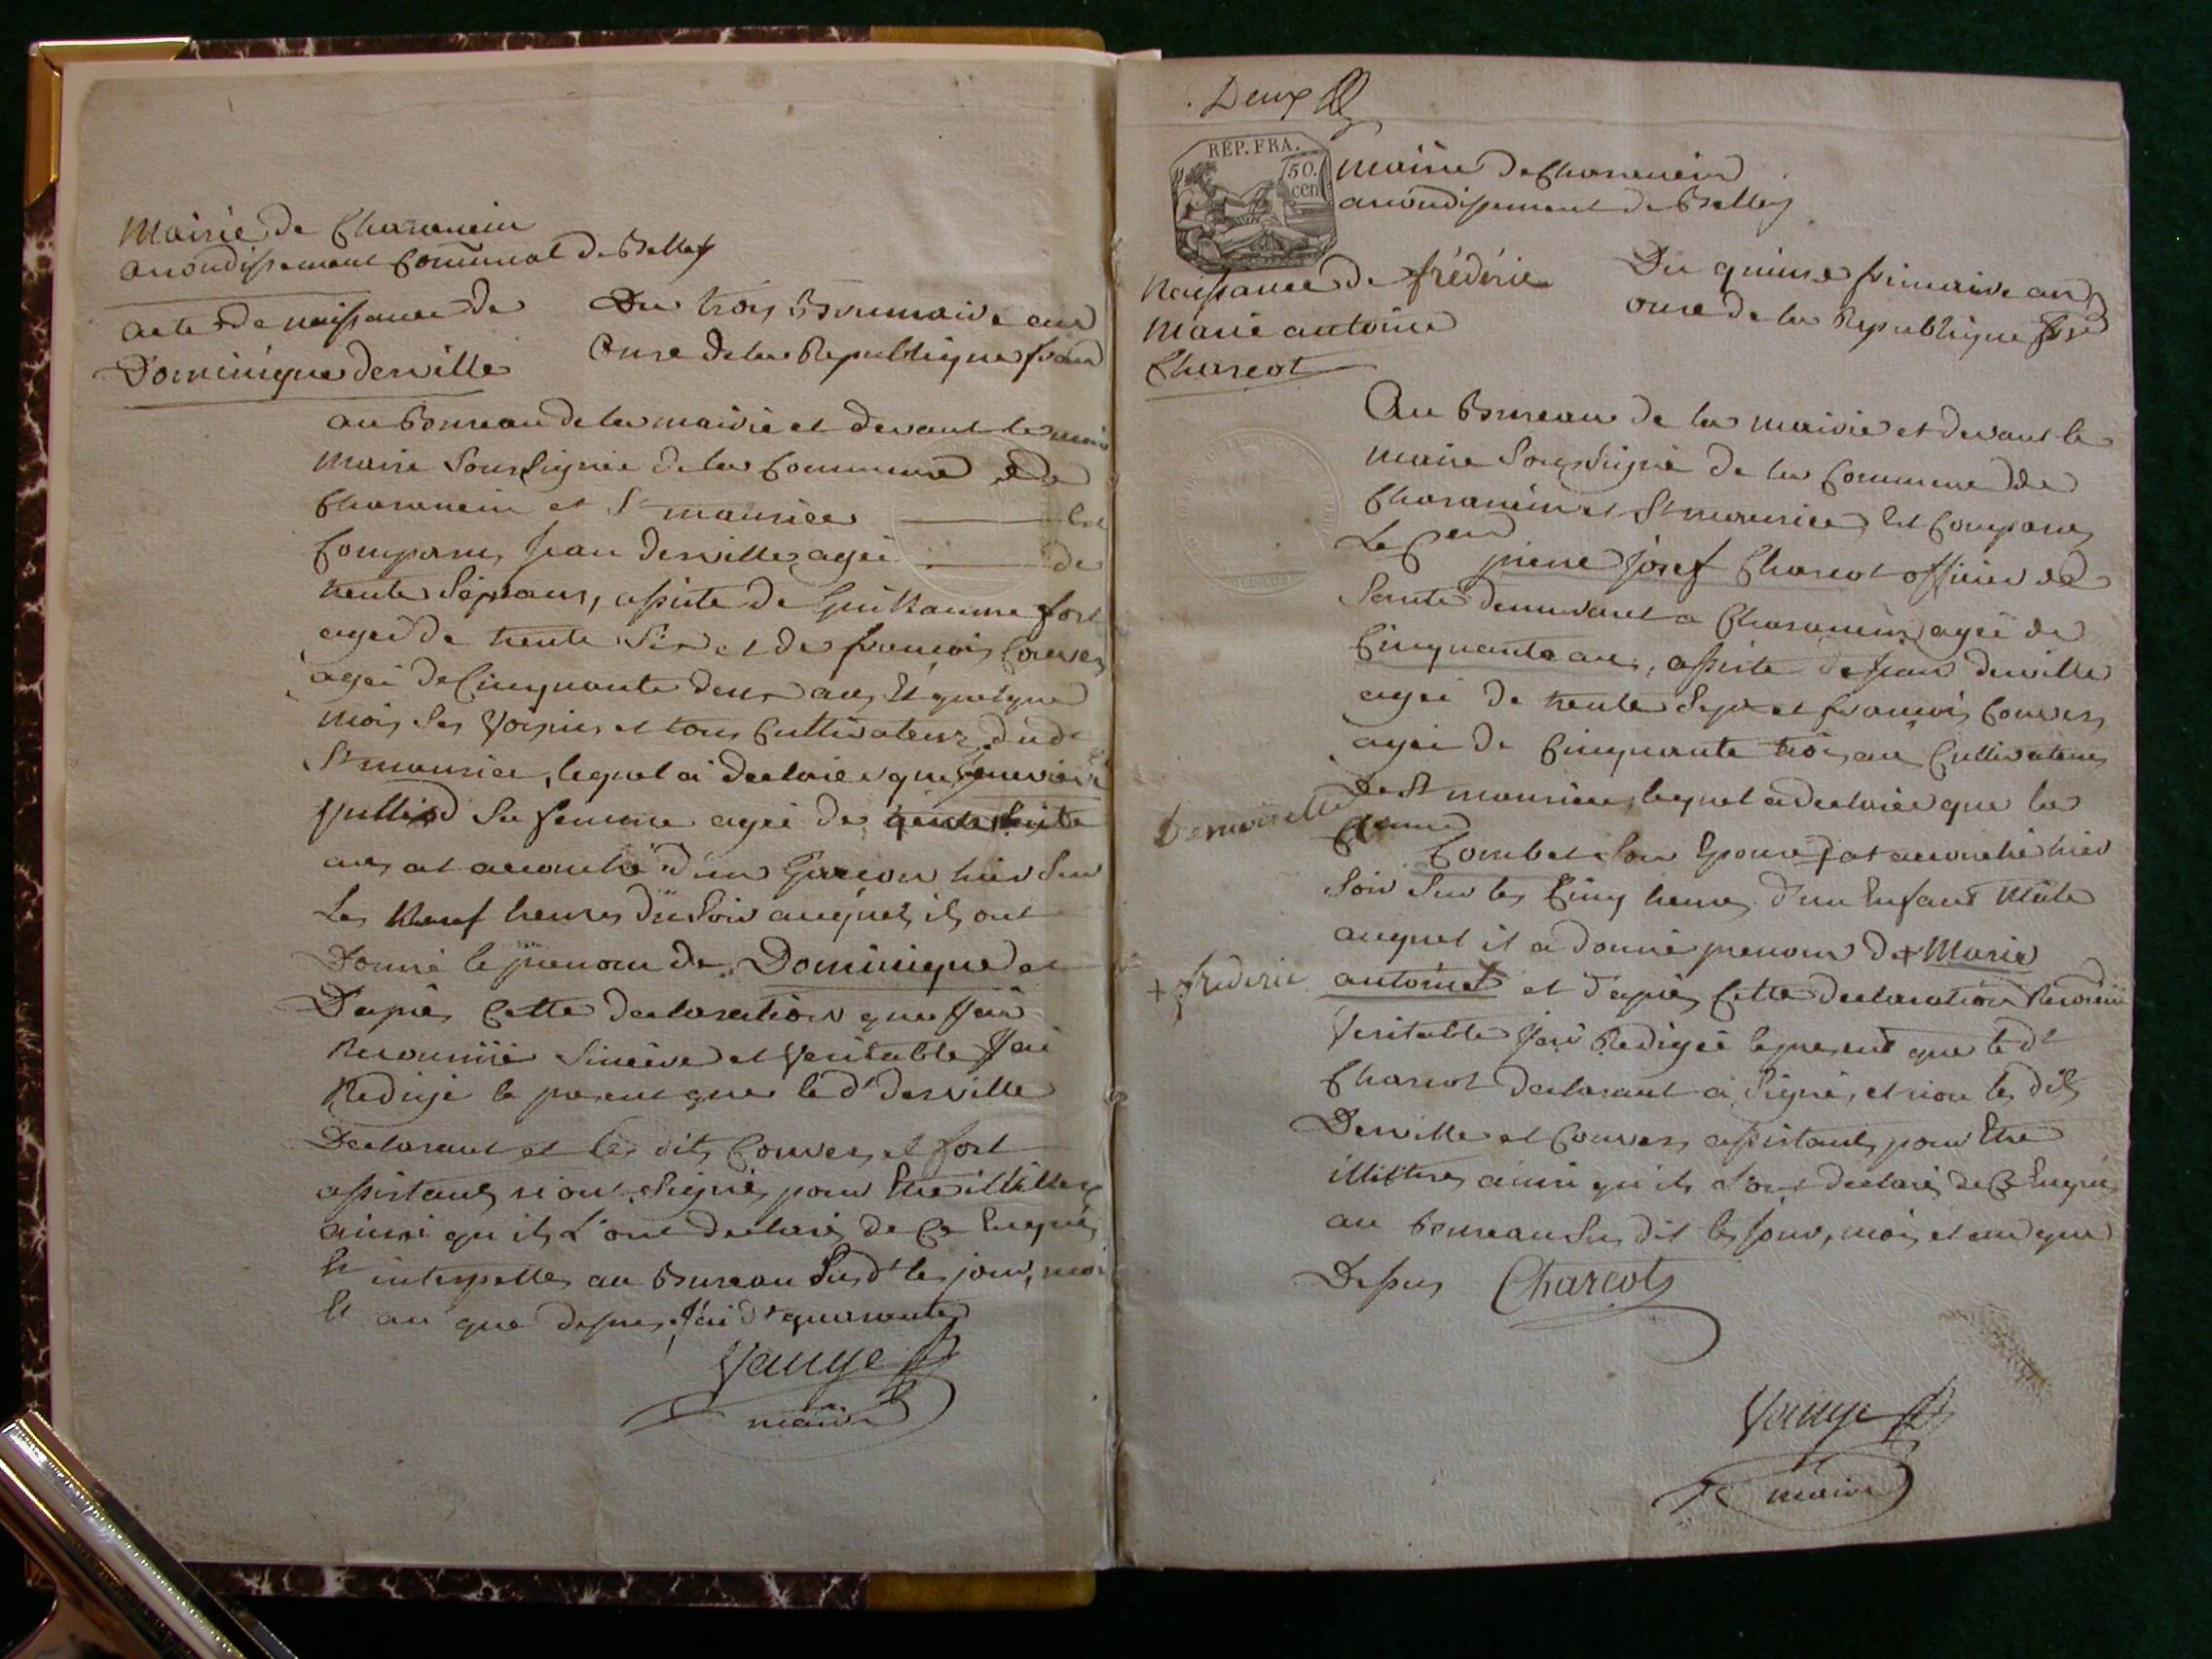 Mairie de Charancin
arrondissement Communal de Belley
acte de naissance de
Dominique Derville
Du trois Brumaire an
Onze de la Republique fran
au Bureau de la mairie et devant le
Maire Soussignée de la Commune de
Charancin et St maurice Est
Comparu, Jean Derville agée de
trente Sept ans, assisté de Guillaume fort
agée de trente Six et de francois Couvers
agée de Cinquante deux ans Et quelque
mois, Ses Voisins et tous Cultivateurs dud
St maurice, lequel a declarer que
Sa femme agée de
ans, at accouché d'un Garcon hier Sur
Les Neuf heures du Soir auquel ils ont
Donné le prenom de Dominique et
D'apres Cette declaration que J'ai
Reconnüe Sincere et Veritable J'ai
Redigé le present que le dt Derville
Declarant et les dits Couvers et fort
assistants n'ont Signé, pour Etre illitteres
ainsi qu'ils L'ont declaré de Ce Enquis
Et interpellé au Bureau Susdt les jour, mois
Et an que dessus, J'ai dt quarante
Vauge
maire
Deux
RÉP. FRA.
50.
cen
Mairie de Charancin
arrondissement de Belley
Naissance de frédéric
Marie antoine
Charcot
Du quinze frimaire an
onze de la Republique
Au Bureau de la mairie et devant le
Maire Soussigné de la Commune de
Charancin et St maurice Est Comparu
Le Cen
pierre Josef Charcot officier de
Santé demeurant a Charancin, agée de
Cinquante ans, assisté de Jean Derville
agée de trente Sept et francois Couvers
agée de Cinquante trois ans Cultivateurs
De St maurice, lequel a declarer que la
Demoiselle
Combet Son Epouse, at accouché hier
Soir Sur les Cinq heures d'un Enfant Mâle
auquel il a donné prenom de + Marie
+ frederic
antoine et d'apres Cette declaration Reconnüe
Veritable J'ai Redigée le present que le dt
Charcot declarant a Signé, et non les dits
Derville et Couvers assistants pour Etre
illitteres ainsi qu'ils L'ont declaré de Ce Enquis
au Bureau Sus dit les Jour, mois et an que
Dessus Charcot
Vauge
maire